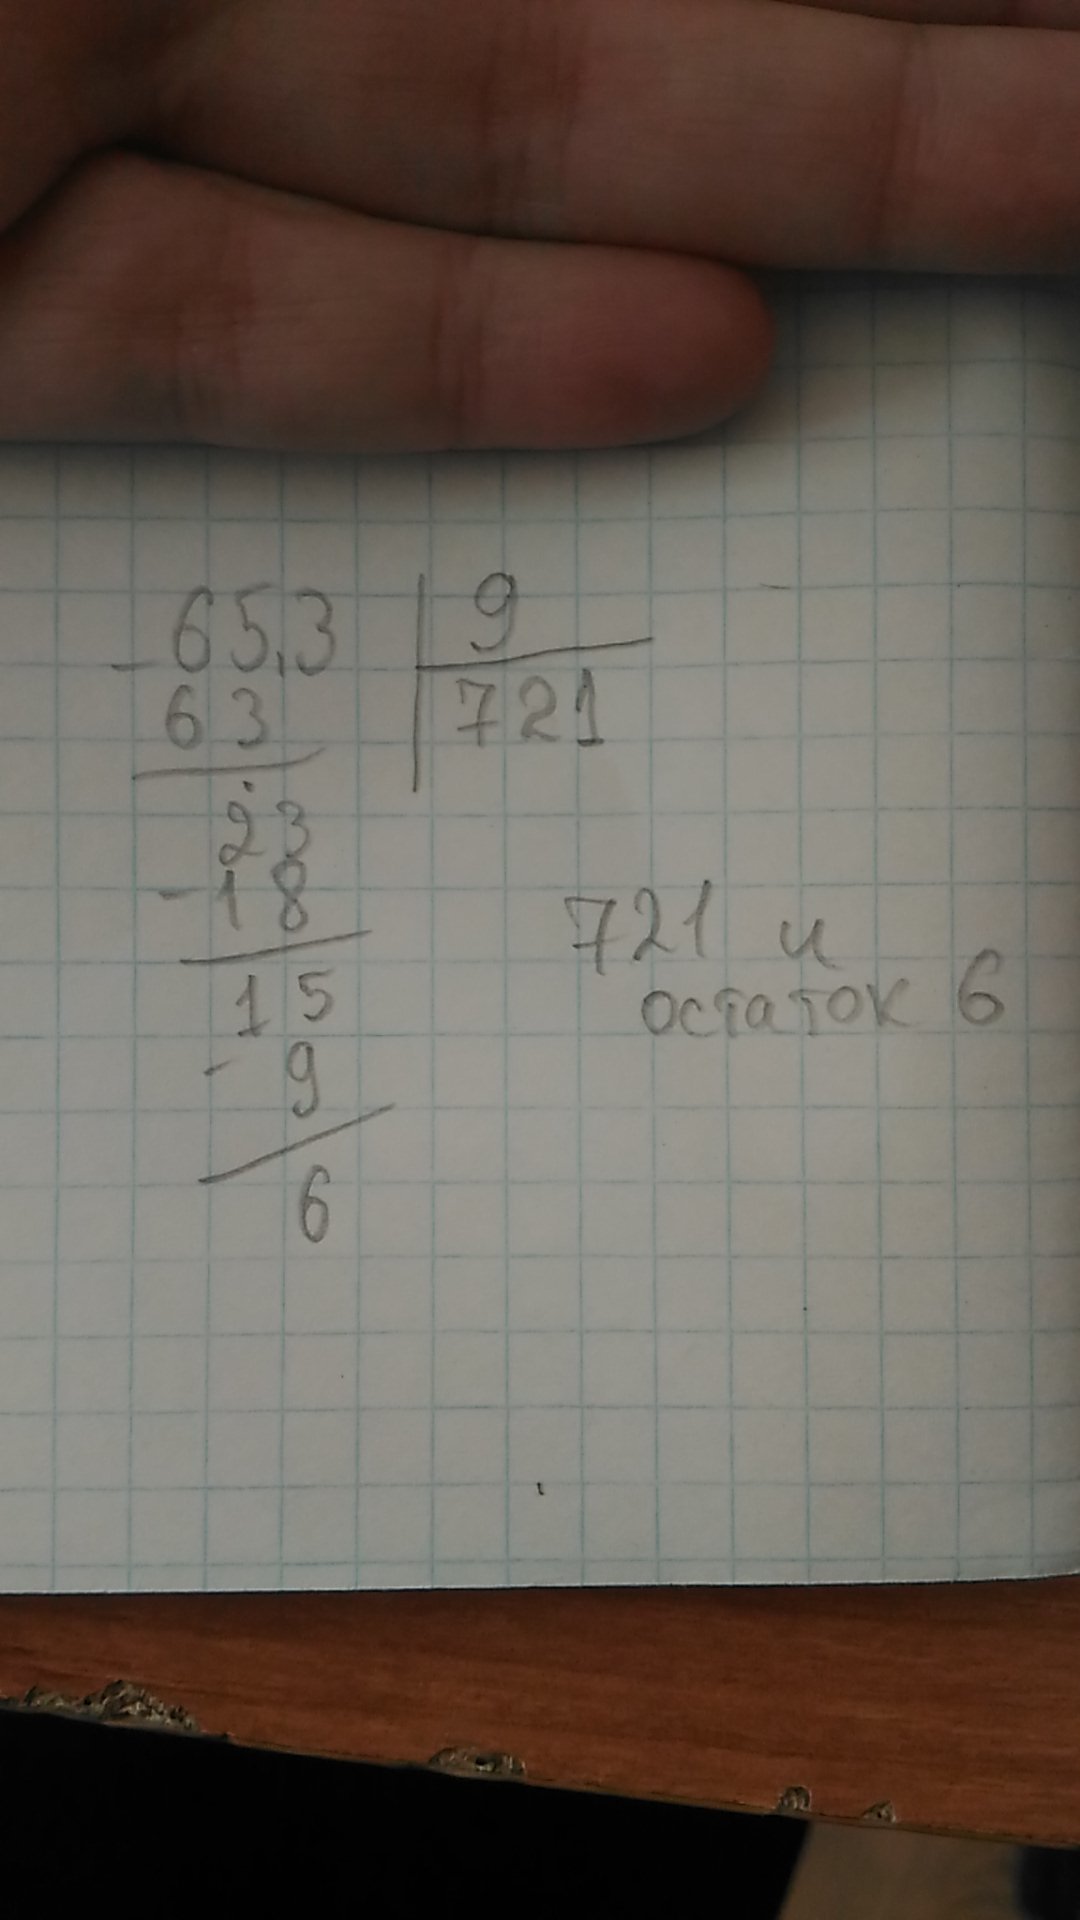 -65,3 | 9
63 | 721
23
-18
15
- 9
6
721 и
остаток 6